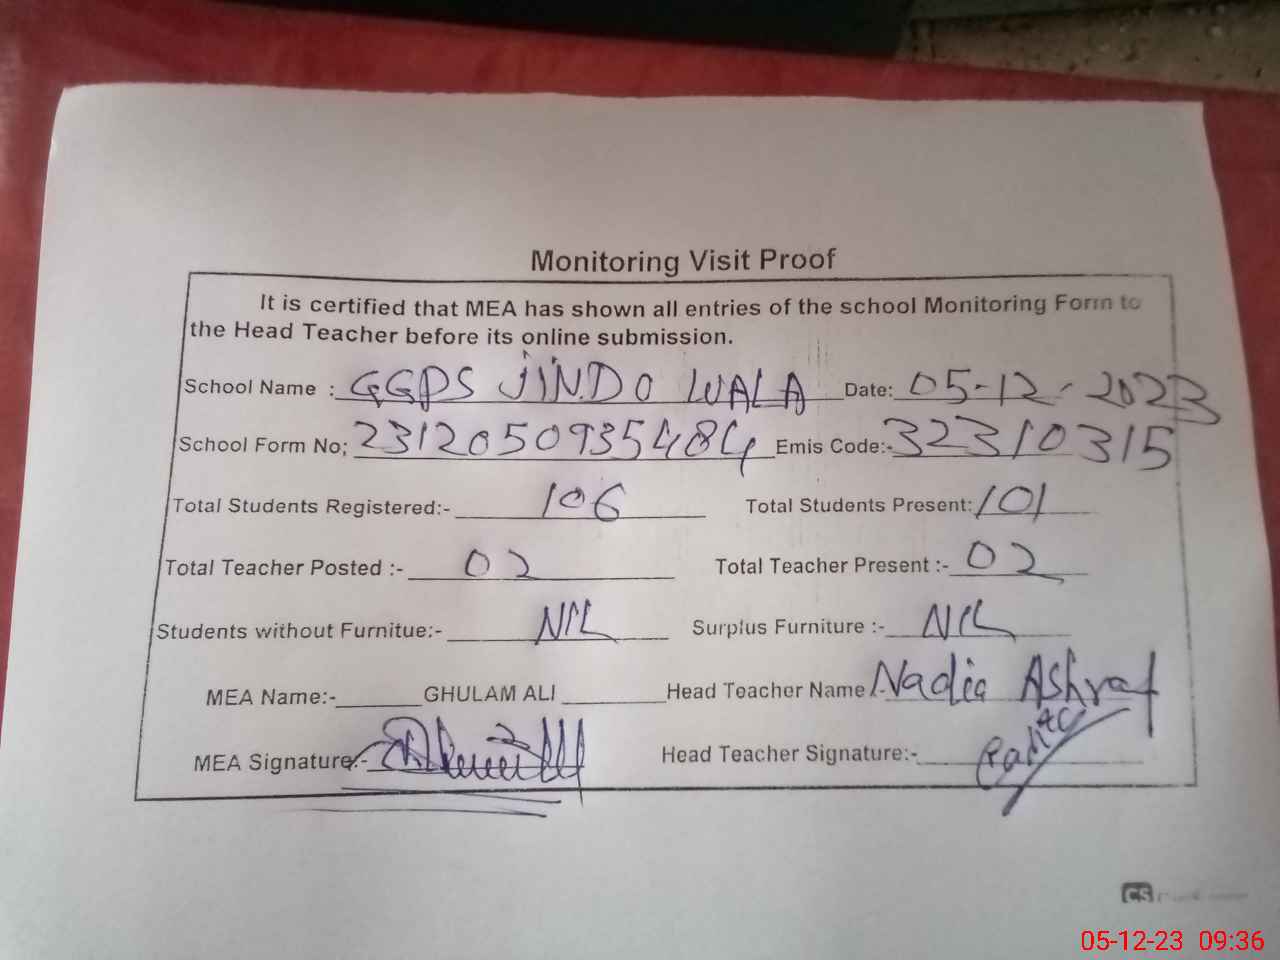 Monitoring Visit Proof
It is certified that MEA has shown all entries of the school Monitoring Form to
the Head Teacher before its online submission.
School Name : GGPS JINDO WALA Date: 05-12-2023
School Form No; 2312050935484 Emis Code:- 32310315
Total Students Registered:- 106 Total Students Present: 101
Total Teacher Posted :- 02 Total Teacher Present :- 02
Students without Furnitue:- NIL Surplus Furniture :- NIL
MEA Name:- GHULAM ALI Head Teacher Name :- Nadia Ashraf
MEA Signature:- Head Teacher Signature:-
CS
05-12-23 09:36